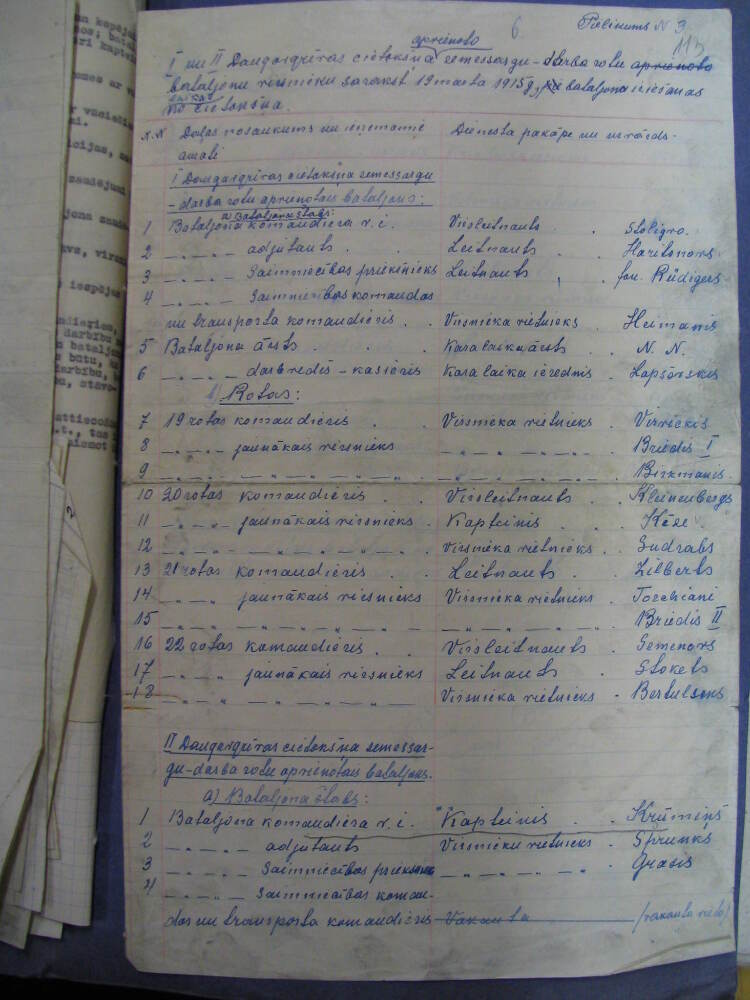 Pielikums N 3
6
113
aprienoto
I un II Daugavgrīvas cietokšņa zemessargu-darba rotu aprienoto
bataljonu virsnieku saraksts 19 marta 1915 g., bataljona iziešanas
laikā
no cietokšņa.
N.N Daļas nosaukums un ieņemamie Dienesta pakāpe un uzvārds-
amati
I Daugavgrīvas cietokšņa zemessargu
-darba rotu aprienotais bataljons:
a) Bataljona štabs:
1 Bataljona komandiera v. i. Virsleitnants . Stoligvo.
2 — „ — „ — adjutants . Leitnants . Haritonovs
3 — „ — „ — Saimniecības priekšnieks Leitnants . fon Rüdigers
4 — „ — „ — Saimniecības komandas
un transporta komandieris . . Virsnieka vietnieks . Heimanis
5 Bataljona ārsts . . Kara laika ārsts . N. N.
6 — „ — „ — darbvedis-kasieris Kara laika ierednis . Lapšovskis
b) Rotas:
7 19 rotas komandieris . . Virsnieka vietnieks . Virsickis
8 — „ — „ — jaunākais virsnieks — „ — „ — „ — „ . Briedis I
9 — „ — „ — „ — „ — „ — „ — „ — „ — „ — „ . Birkmanis.
10 20 rotas komandieris . . Virsleitnants . . Kleinenbergs
11 — „ — „ — jaunākais virsnieks . Kapteinis . . Ķēze .
12 — „ — „ — „ — „ — „ — . Virsnieka vietnieks . Sudrabs
13 21 rotas komandieris . . Leitnants . . Zilberts
14 — „ — „ — jaunākais virsnieks . Virsnieka vietnieks . Torchiani
15 — „ — „ — „ — „ — „ — „ — „ — „ — „ — „ . Briedis II
16 22 rotas komandieris . . Virsleitnants . Semenovs
17 — „ — „ — jaunākais virsnieks Leitnants . Stokets
18 — „ — „ — „ — „ — „ Virsnieka vietnieks . Bertulsons
II Daugavgrīvas cietokšņa zemessar-
gu-darba rotu aprienotais bataljons.
a) Bataljona štabs:
1 Bataljona komandiera v. i. Kapteinis . . Krūmiņš
2 — „ — „ — adjutants Virsnieku vietnieks . Sprunks
3 — „ — „ — Saimniecības priekšnieks — „ — „ — „ — „ . Grasis
4 — „ — „ — Saimniecības koman-
das un transporta komandieris Vakanta (vakanta vieta)